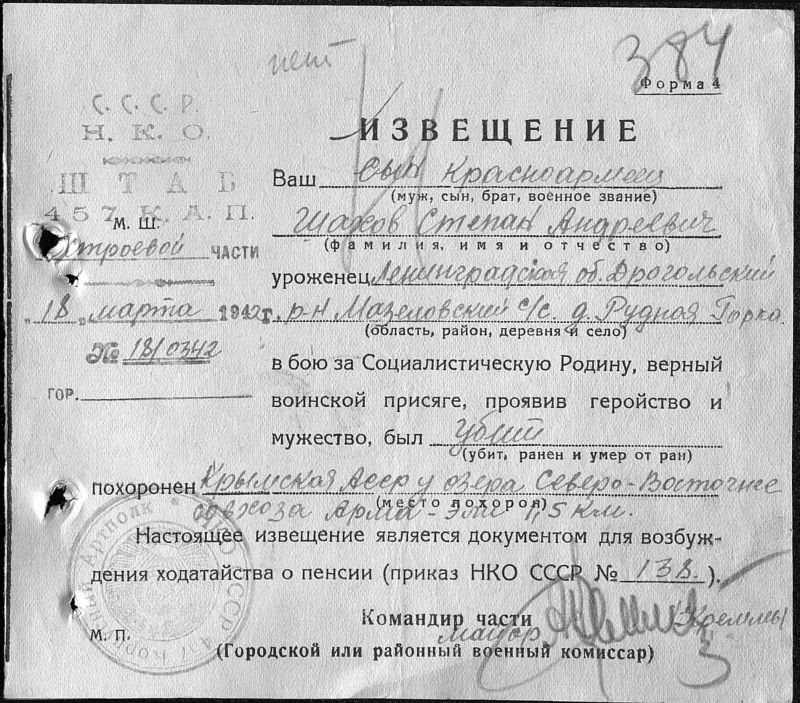 нет
384
Форма 4
С. С. С. Р.
Н. К. О.
ШТАБ
457 К. А. П.
М. Ш.
Строевой части
"18" марта 1942 г.
№ 181/0342
гор.
ИЗВЕЩЕНИЕ
Ваш сын красноармеец
(муж, сын, брат, военное звание)
Шахов Степан Андреевич
(фамилия, имя и отчество)
уроженец Ленинградская об. Дрогольский
р-н Мазеловский с/с. д. Рудная Горка.
(область, район, деревня и село)
в бою за Социалистическую Родину, верный
воинской присяге, проявив геройство и
мужество, был убит
(убит, ранен и умер от ран)
похоронен Крымская Асср у озера Северо-Восточнее
(место похорон)
совхоза Арма-Эли 1,5 км.
Настоящее извещение является документом для возбуж-
дения ходатайства о пенсии (приказ НКО СССР № 138.).
Командир части
майор
(Городской или районный военный комиссар)
М. П.
Артполк * НКО СССР